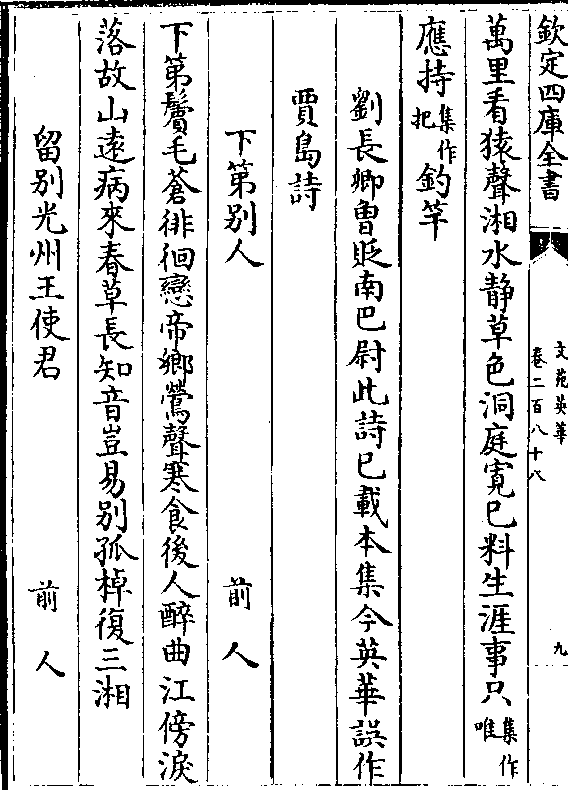 欽定四庫全書
文苑英華
卷二百八十八
九
萬里看猿聲湘水静草色洞庭寛已料生涯事只集作唯
應持集作把釣竿
劉長卿曾貶南巴尉此詩已載本集今英華誤作
賈島詩
下第别人
前人
下第鬢毛蒼徘徊戀帝鄉鶯聲寒食後人醉曲江傍淚
落故山遠病來春草長知音豈易别孤棹復三湘
留别光州王使君
前人